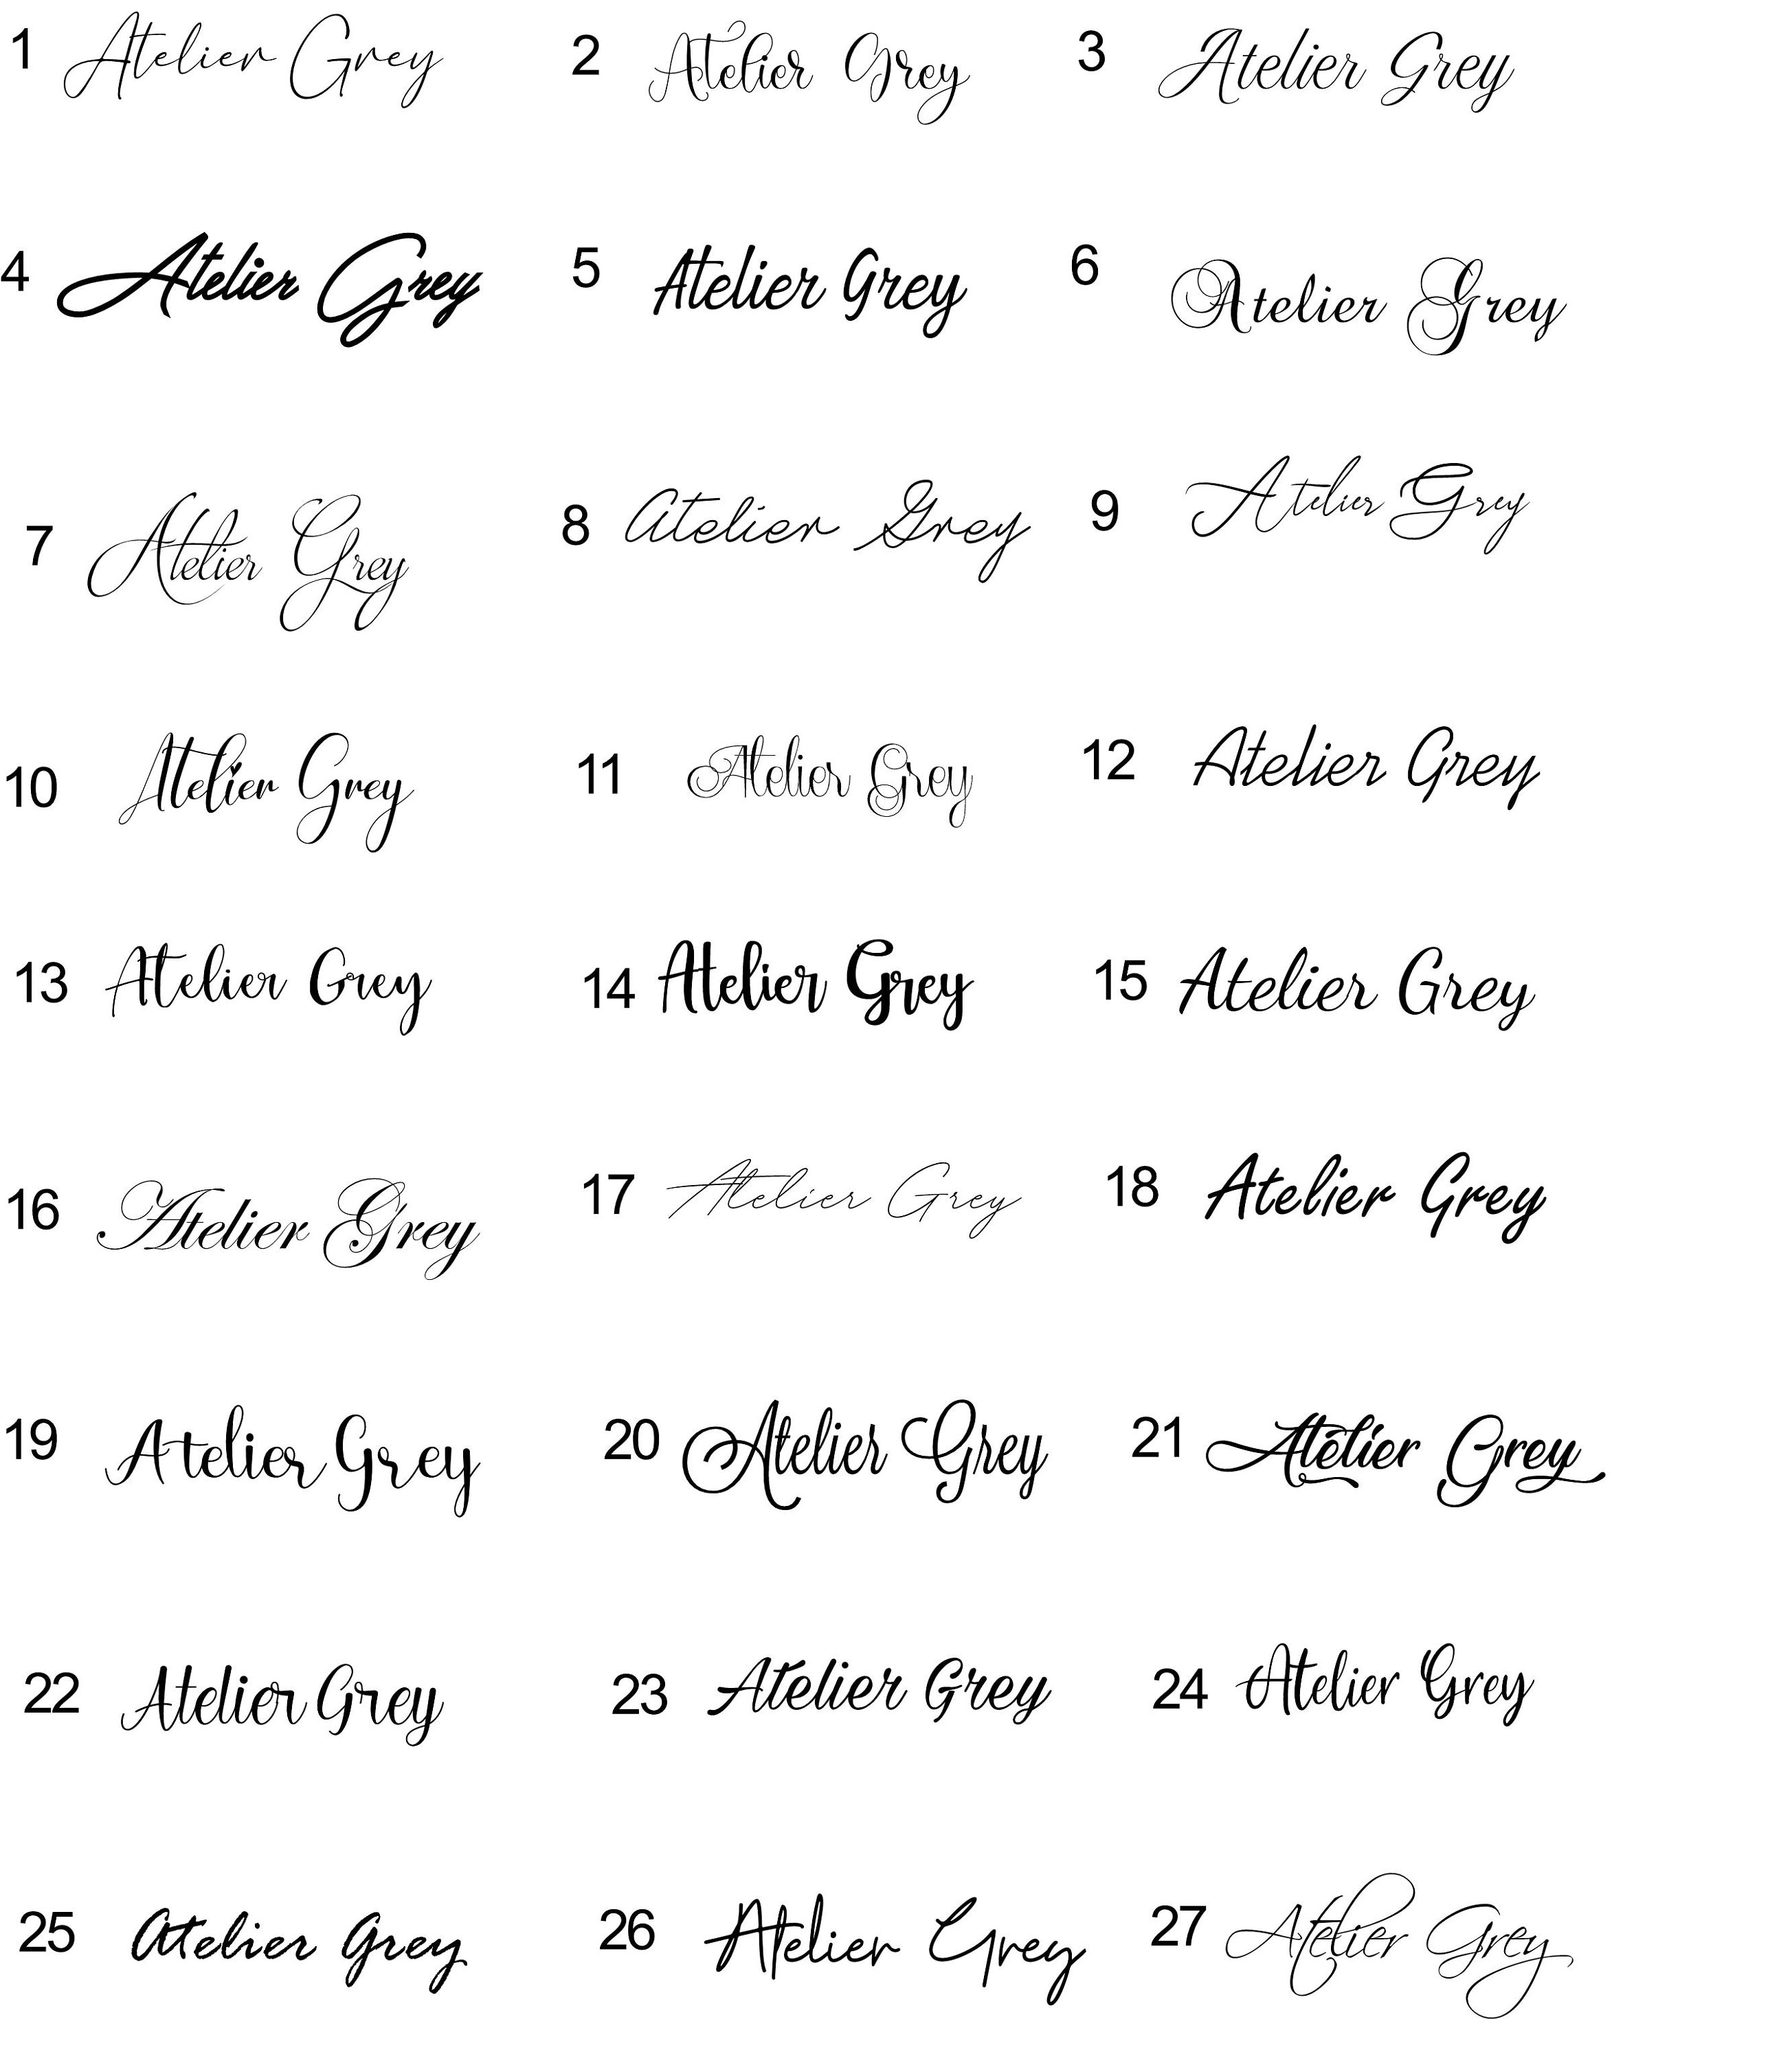 1 Atelier Grey 2 Atelier Grey 3 Atelier Grey
4 Atelier Grey 5 Atelier Grey 6 Atelier Grey
7 Atelier Grey 8 Atelier Grey 9 Atelier Grey
10 Atelier Grey 11 Atelier Grey 12 Atelier Grey
13 Atelier Grey 14 Atelier Grey 15 Atelier Grey
16 Atelier Grey 17 Atelier Grey 18 Atelier Grey
19 Atelier Grey 20 Atelier Grey 21 Atelier Grey
22 Atelier Grey 23 Atelier Grey 24 Atelier Grey
25 Atelier Grey 26 Atelier Grey 27 Atelier Grey